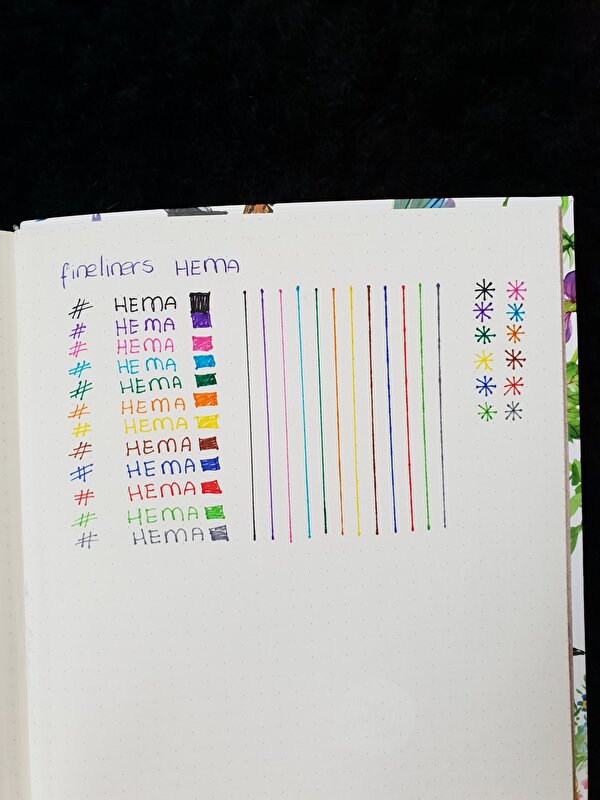 fineliners HEMA
# HEMA
# HEMA
# HEMA
# HEMA
# HEMA
# HEMA
# HEMA
# HEMA
# HEMA
# HEMA
# HEMA
# HEMA